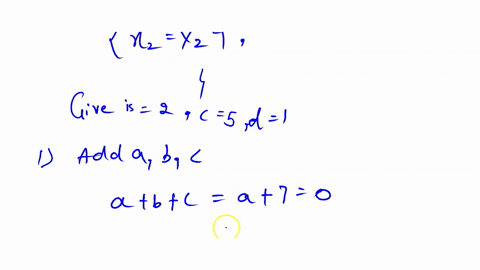 { x₂ = x₂ 7 ,
Give is = 2 , c = 5 , d = 1
1) Add a, b, c
a + b + c = a + 7 = 0